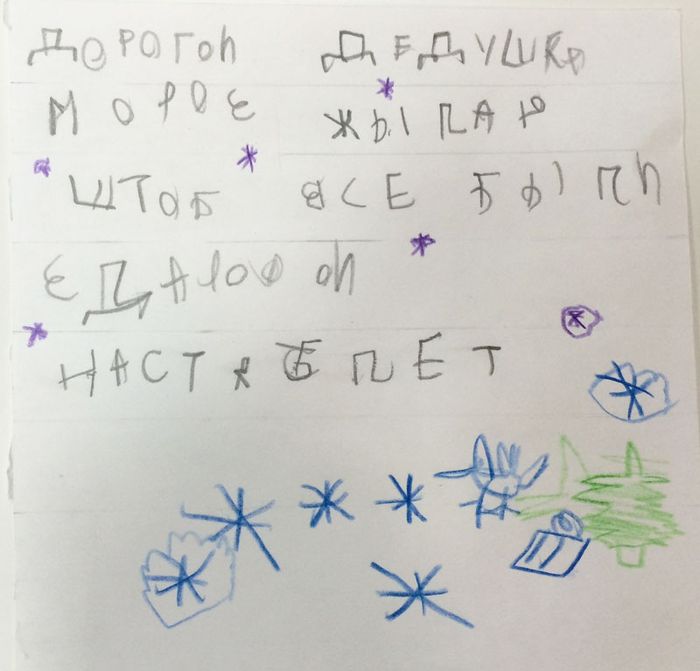 ДОРОГОЙ ДЕДУШКА
МОРОЗ ЖЫЛАЮ
ШТОБ ВСЕ БЫЛИ
ЗДАРОВОИ
НАСТЯ 6 ЛЕТ